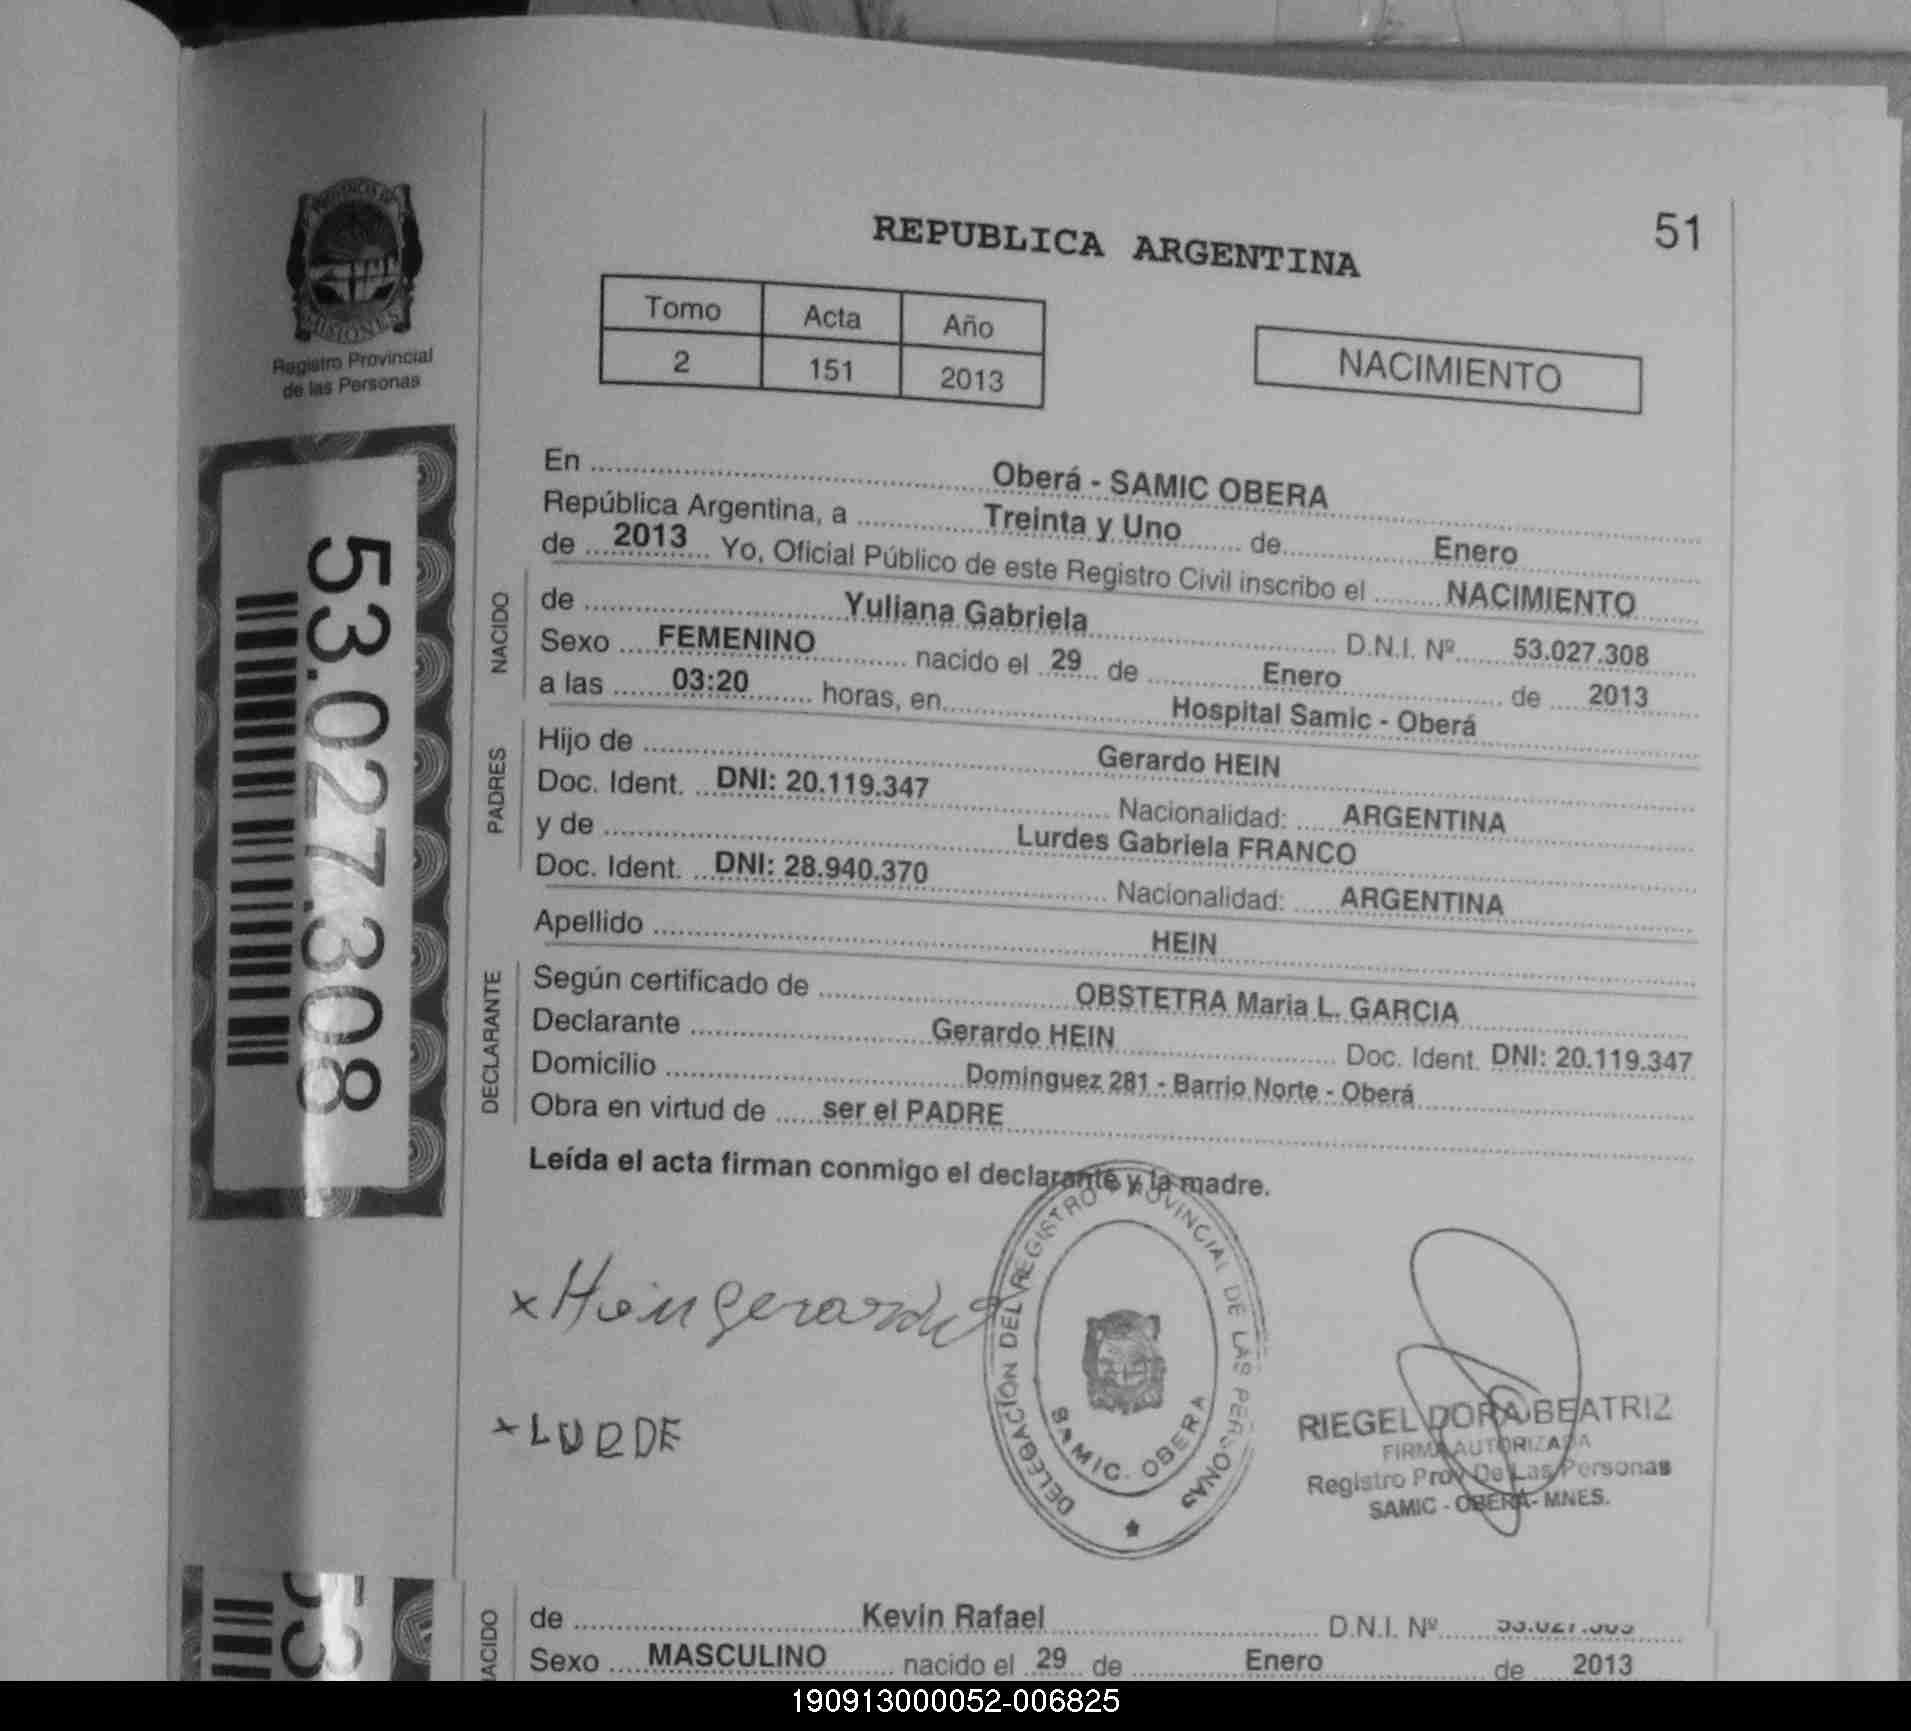 PROVINCIA DE
MISIONES
Registro Provincial
de las Personas
53.027.308
REPUBLICA ARGENTINA
51
Tomo Acta Año
2 151 2013
NACIMIENTO
En Oberá - SAMIC OBERA
República Argentina, a Treinta y Uno de Enero
de 2013 Yo, Oficial Público de este Registro Civil inscribo el NACIMIENTO
NACIDO
de Yuliana Gabriela D.N.I. Nº 53.027.308
Sexo FEMENINO nacido el 29 de Enero de 2013
a las 03:20 horas, en Hospital Samic - Oberá
PADRES
Hijo de Gerardo HEIN
Doc. Ident. DNI: 20.119.347 Nacionalidad: ARGENTINA
y de Lurdes Gabriela FRANCO
Doc. Ident. DNI: 28.940.370 Nacionalidad: ARGENTINA
Apellido HEIN
DECLARANTE
Según certificado de OBSTETRA Maria L. GARCIA
Declarante Gerardo HEIN Doc. Ident. DNI: 20.119.347
Domicilio Dominguez 281 - Barrio Norte - Oberá
Obra en virtud de ser el PADRE
Leída el acta firman conmigo el declarante y la madre.
x Hein gerardo
x LURDE
DELEGACIÓN DEL REGISTRO PROVINCIAL DE LAS PERSONAS
SAMIC. OBERA
RIEGEL DORA BEATRIZ
FIRMA AUTORIZADA
Registro Prov De Las Personas
SAMIC - OBERA - MNES.
53
ACIDO
de Kevin Rafael D.N.I. Nº
Sexo MASCULINO nacido el 29 de Enero de 2013
190913000052-006825